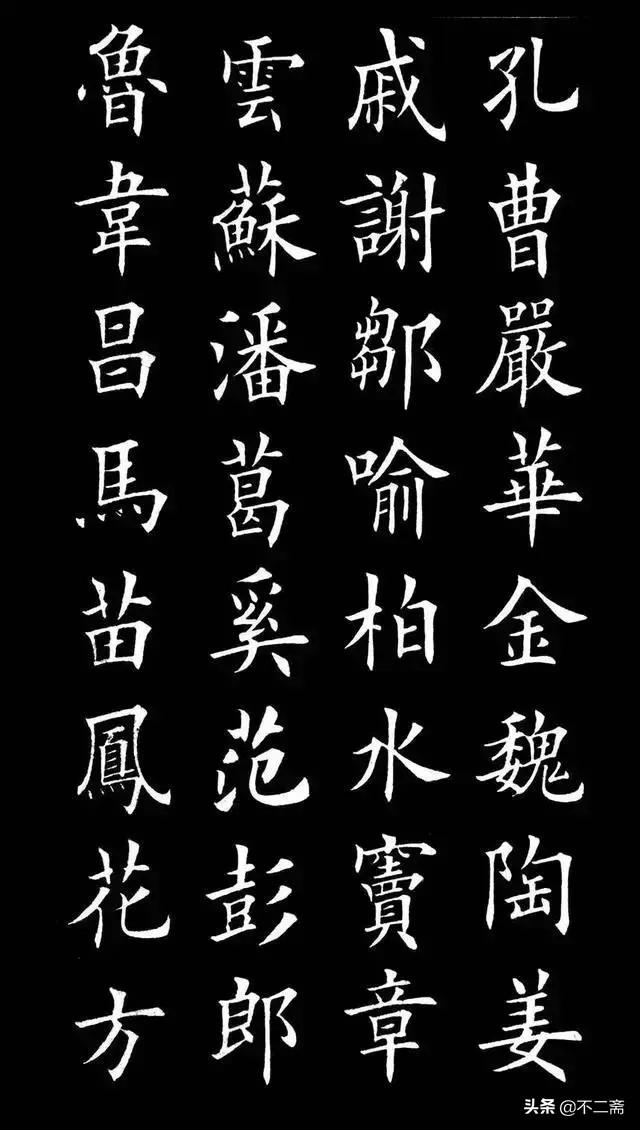 孔曹嚴華金魏陶姜
戚謝鄒喻柏水竇章
雲蘇潘葛奚范彭郎
魯韋昌馬苗鳳花方
头条 @不二斋